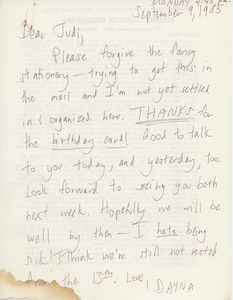 MONDAY 4:45 P.M.
September 9, 1985
Dear Judi,
Please forgive the fancy
stationery — trying to get this in
the mail and I'm not yet settled
in & organized here. THANKS for
the birthday card! Good to talk
to you today, and yesterday, too.
Look forward to seeing you both
next week. Hopefully we will be
well by then — I hate being
sick! I think we're still not rested
from the 13th. Love,
DAYNA